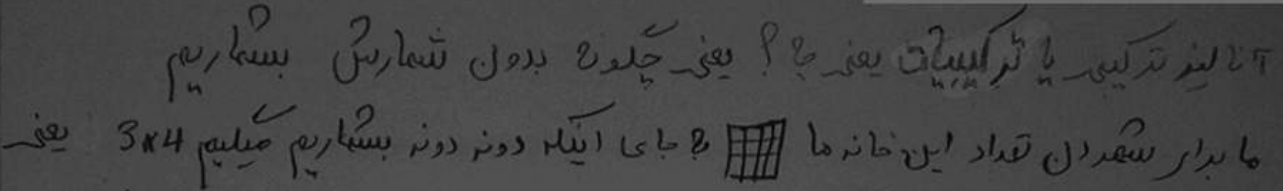 آنالیز ترکیبی یا ترکیبیات یعنی چه؟ یعنی چگونه بدون شمارش بشماریم
ما برای شمردن تعداد این خانه ها به جای اینکه دونه دونه بشماریم میگیم 3x4 یعنی